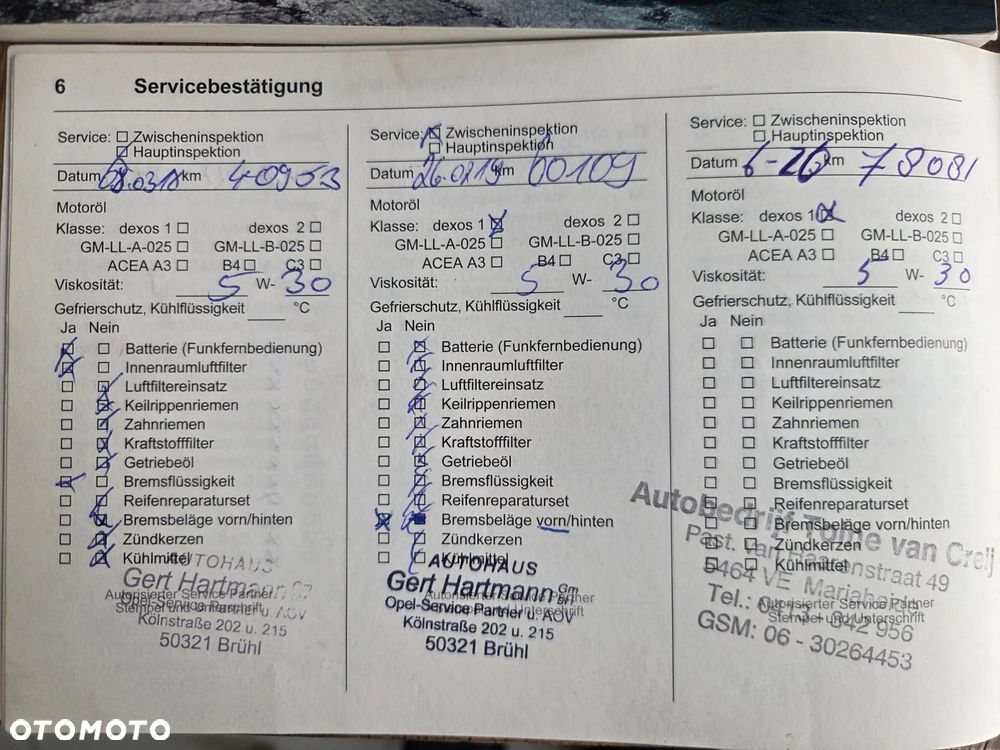 6 Servicebestätigung
Service: Zwischeninspektion
Hauptinspektion
Datum 08.0318 km 40953
Motoröl
Klasse: dexos 1 dexos 2
GM-LL-A-025 GM-LL-B-025
ACEA A3 B4 C3
Viskosität: 5 W- 30
Gefrierschutz, Kühlflüssigkeit °C
Ja Nein
Batterie (Funkfernbedienung)
Innenraumluftfilter
Luftfiltereinsatz
Keilrippenriemen
Zahnriemen
Kraftstofffilter
Getriebeöl
Bremsflüssigkeit
Reifenreparaturset
Bremsbeläge vorn/hinten
Zündkerzen
Kühlmittel
AUTOHAUS
Gert Hartmann
Autorisierter Service Partner
Opel-Service Partner u. AOV
Stempel und Unterschrift
Kölnstraße 202 u. 215
50321 Brühl
Service: Zwischeninspektion
Hauptinspektion
Datum 26.0219 km 60109
Motoröl
Klasse: dexos 1 dexos 2
GM-LL-A-025 GM-LL-B-025
ACEA A3 B4 C3
Viskosität: 5 W- 30
Gefrierschutz, Kühlflüssigkeit °C
Ja Nein
Batterie (Funkfernbedienung)
Innenraumluftfilter
Luftfiltereinsatz
Keilrippenriemen
Zahnriemen
Kraftstofffilter
Getriebeöl
Bremsflüssigkeit
Reifenreparaturset
Bremsbeläge vorn/hinten
Zündkerzen
Kühlmittel
AUTOHAUS
Gert Hartmann GmbH
Autorisierter Service Partner
Opel-Service Partner u. AOV
Stempel und Unterschrift
Kölnstraße 202 u. 215
50321 Brühl
Service: Zwischeninspektion
Hauptinspektion
Datum 6-20 km 78081
Motoröl
Klasse: dexos 1 dexos 2
GM-LL-A-025 GM-LL-B-025
ACEA A3 B4 C3
Viskosität: 5 W- 30
Gefrierschutz, Kühlflüssigkeit °C
Ja Nein
Batterie (Funkfernbedienung)
Innenraumluftfilter
Luftfiltereinsatz
Keilrippenriemen
Zahnriemen
Kraftstofffilter
Getriebeöl
Bremsflüssigkeit
Reifenreparaturset
Bremsbeläge vorn/hinten
Zündkerzen
Kühlmittel
Autobedrijf Tome van Creij
Past. van Haarenstraat 49
5464 VE Mariaheide
Autorisierter Service Partner
Tel.: 0413 - 342 956
Stempel und Unterschrift
GSM: 06 - 30264453
OTOMOTO